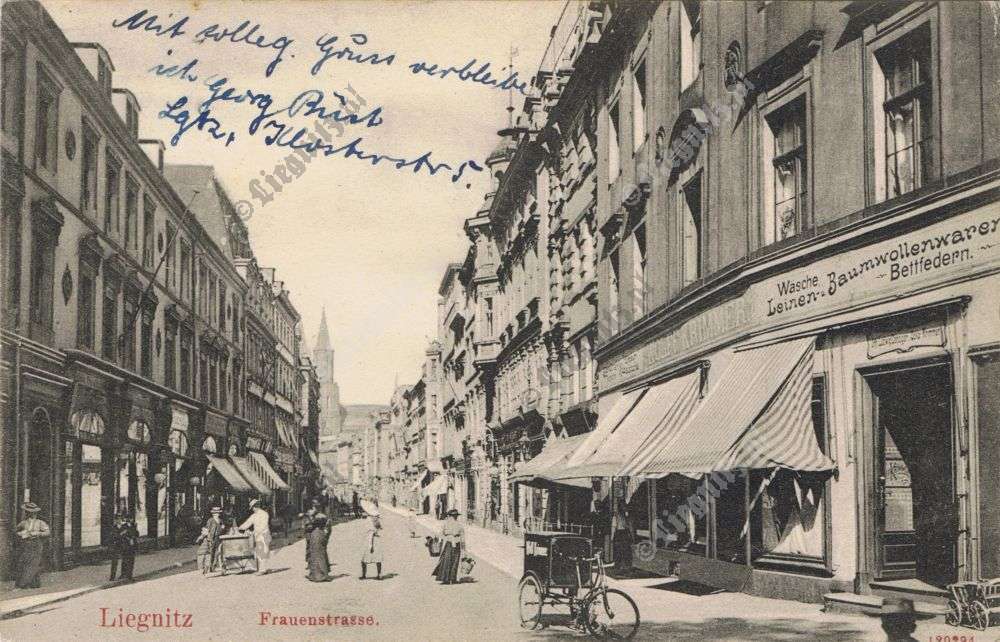 Mit colleg. Gruss verbleibe
ich Georg Büst
Lgtz, Klosterstr 5.
Wäsche
Leinen- Baumwollenwaren
Bettfedern.
Liegnitz
Frauenstrasse.
© liegnitz.pl